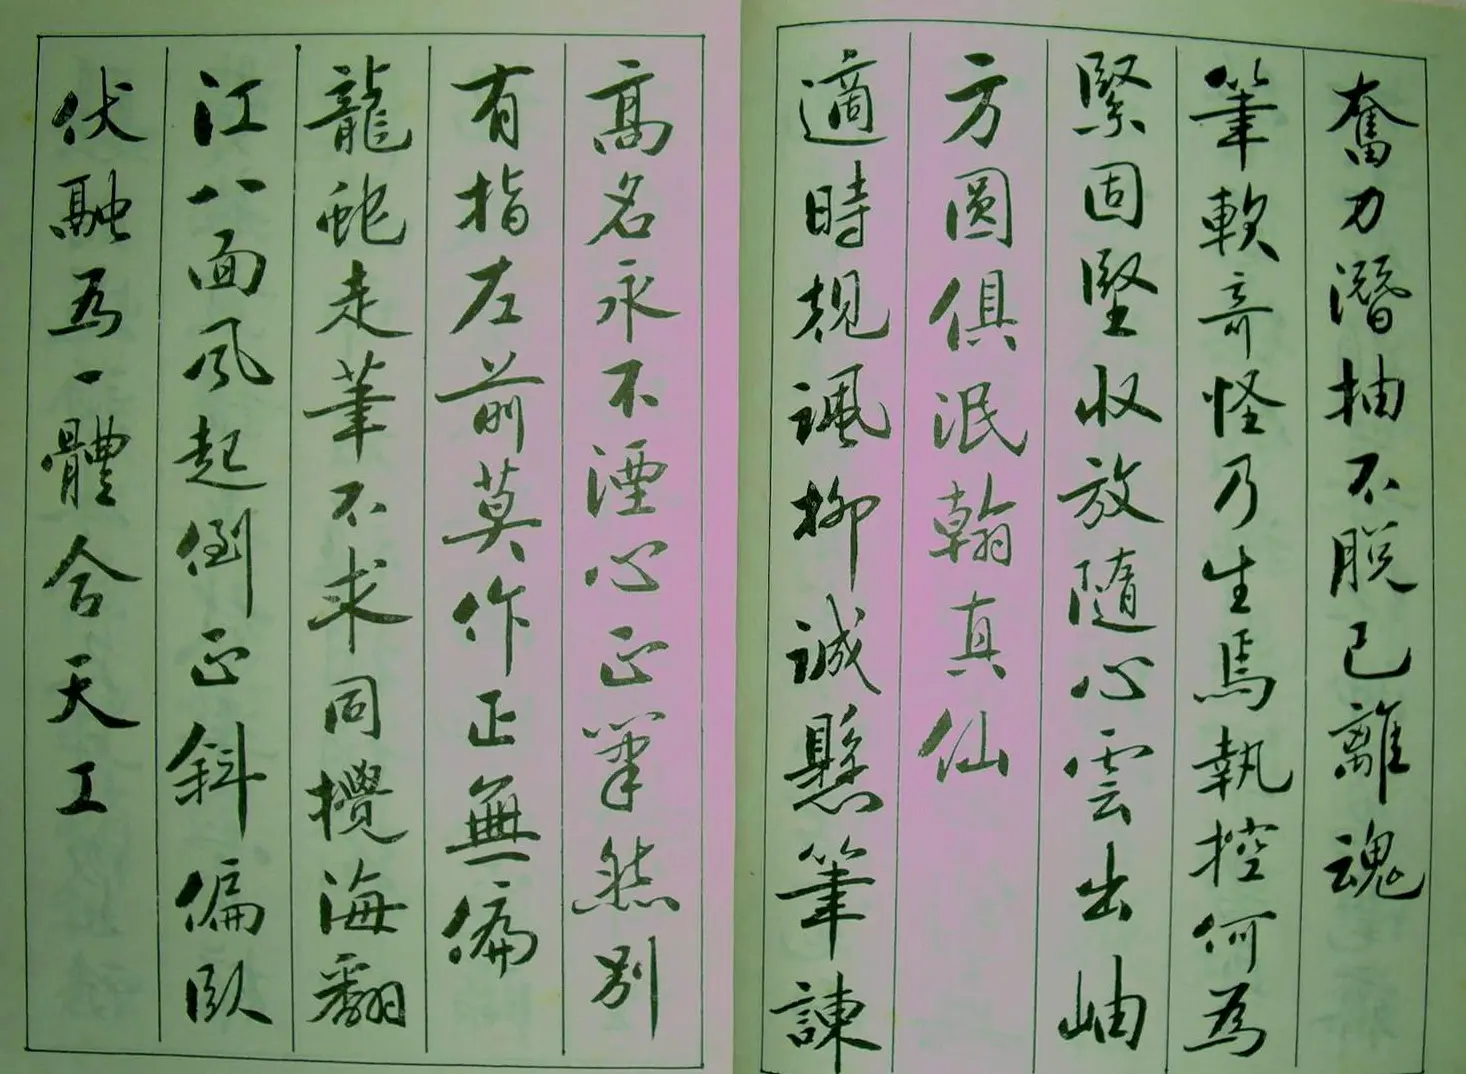 奮力潛抽不脫已離魂
筆軟奇怪乃生焉執控何為
緊固堅收放隨心雲出岫
方圓俱泯翰真仙
適時規諷柳誠懸筆諫
高名永不湮心正筆然別
有指左前莫作正無偏
龍蛇走筆不求同攪海翻
江八面風起倒正斜偏臥
伏融為一體合天工